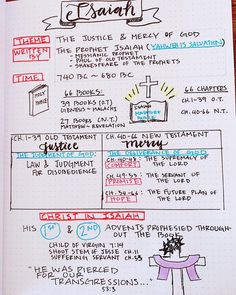 ISAIAH
THEME THE JUSTICE & MERCY OF GOD
WRITTEN BY THE PROPHET ISAIAH (YAHWEH IS SALVATION)
- MESSIANIC PROPHET
- PAUL OF OLD TESTAMENT
- SHAKESPEARE OF THE PROPHETS
TIME 740 BC ~ 680 BC
HOLY BIBLE
66 BOOKS:
39 BOOKS (O.T)
GENESIS - MALACHI
27 BOOKS (N.T.)
MATTHEW - REVELATION
ISAIAH
66 CHAPTERS
CH. 1-39 - O.T.
CH. 40-66 - N.T.
CH. 1-39 OLD TESTAMENT
Justice
THE JUDGMENT OF GOD:
LAW & JUDGMENT
FOR DISOBEDIENCE
CH. 40-66 - NEW TESTAMENT
Mercy
THE DELIVERANCE OF GOD:
CH. 40-48 - THE SUPREMACY
COMFORT OF THE LORD
CH. 49-53 - THE SERVANT OF
PROMISE THE LORD
CH. 54-66 - THE FUTURE PLAN OF
HOPE THE LORD
CHRIST IN ISAIAH
HIS 1ST & 2ND ADVENTS PROPHESIED THROUGH
OUT THE BOOK
CHILD OF VIRGIN 7:14
SHOOT STEM OF JESSE CH. 11
SUFFERING SERVANT CH. 53
"HE WAS PIERCED
FOR OUR
TRANSGRESSIONS..."
53:3